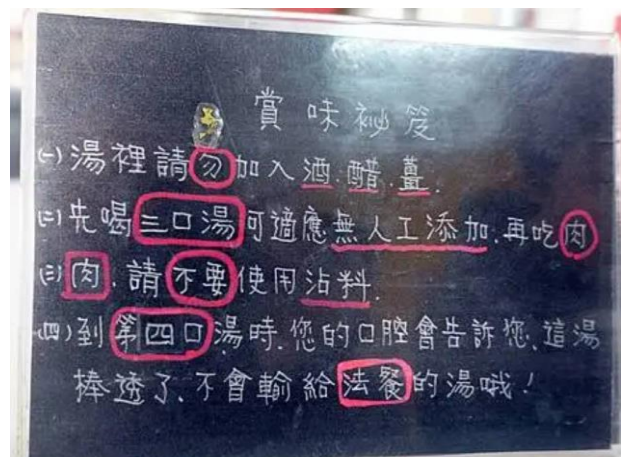 賞味祕笈
(一)湯裡請勿加入酒.醋.薑.
(二)先喝三口湯可適應無人工添加.再吃肉
(三)肉.請不要使用沾料.
(四)到第四口湯時.您的口腔會告訴您.這湯
棒透了.不會輸給法餐的湯哦!